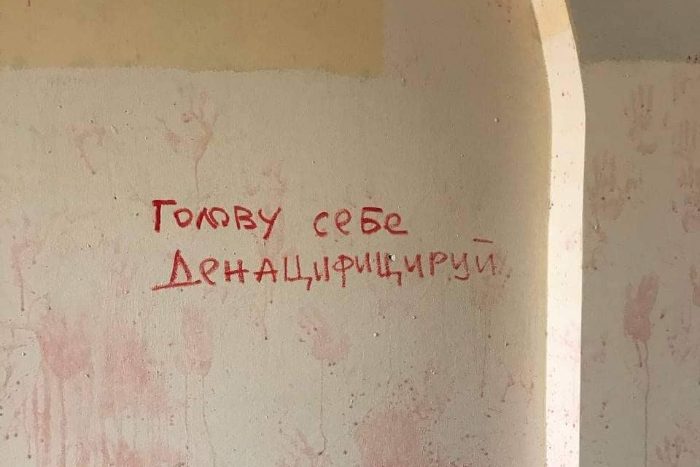 Голову себе
Денацифицируй